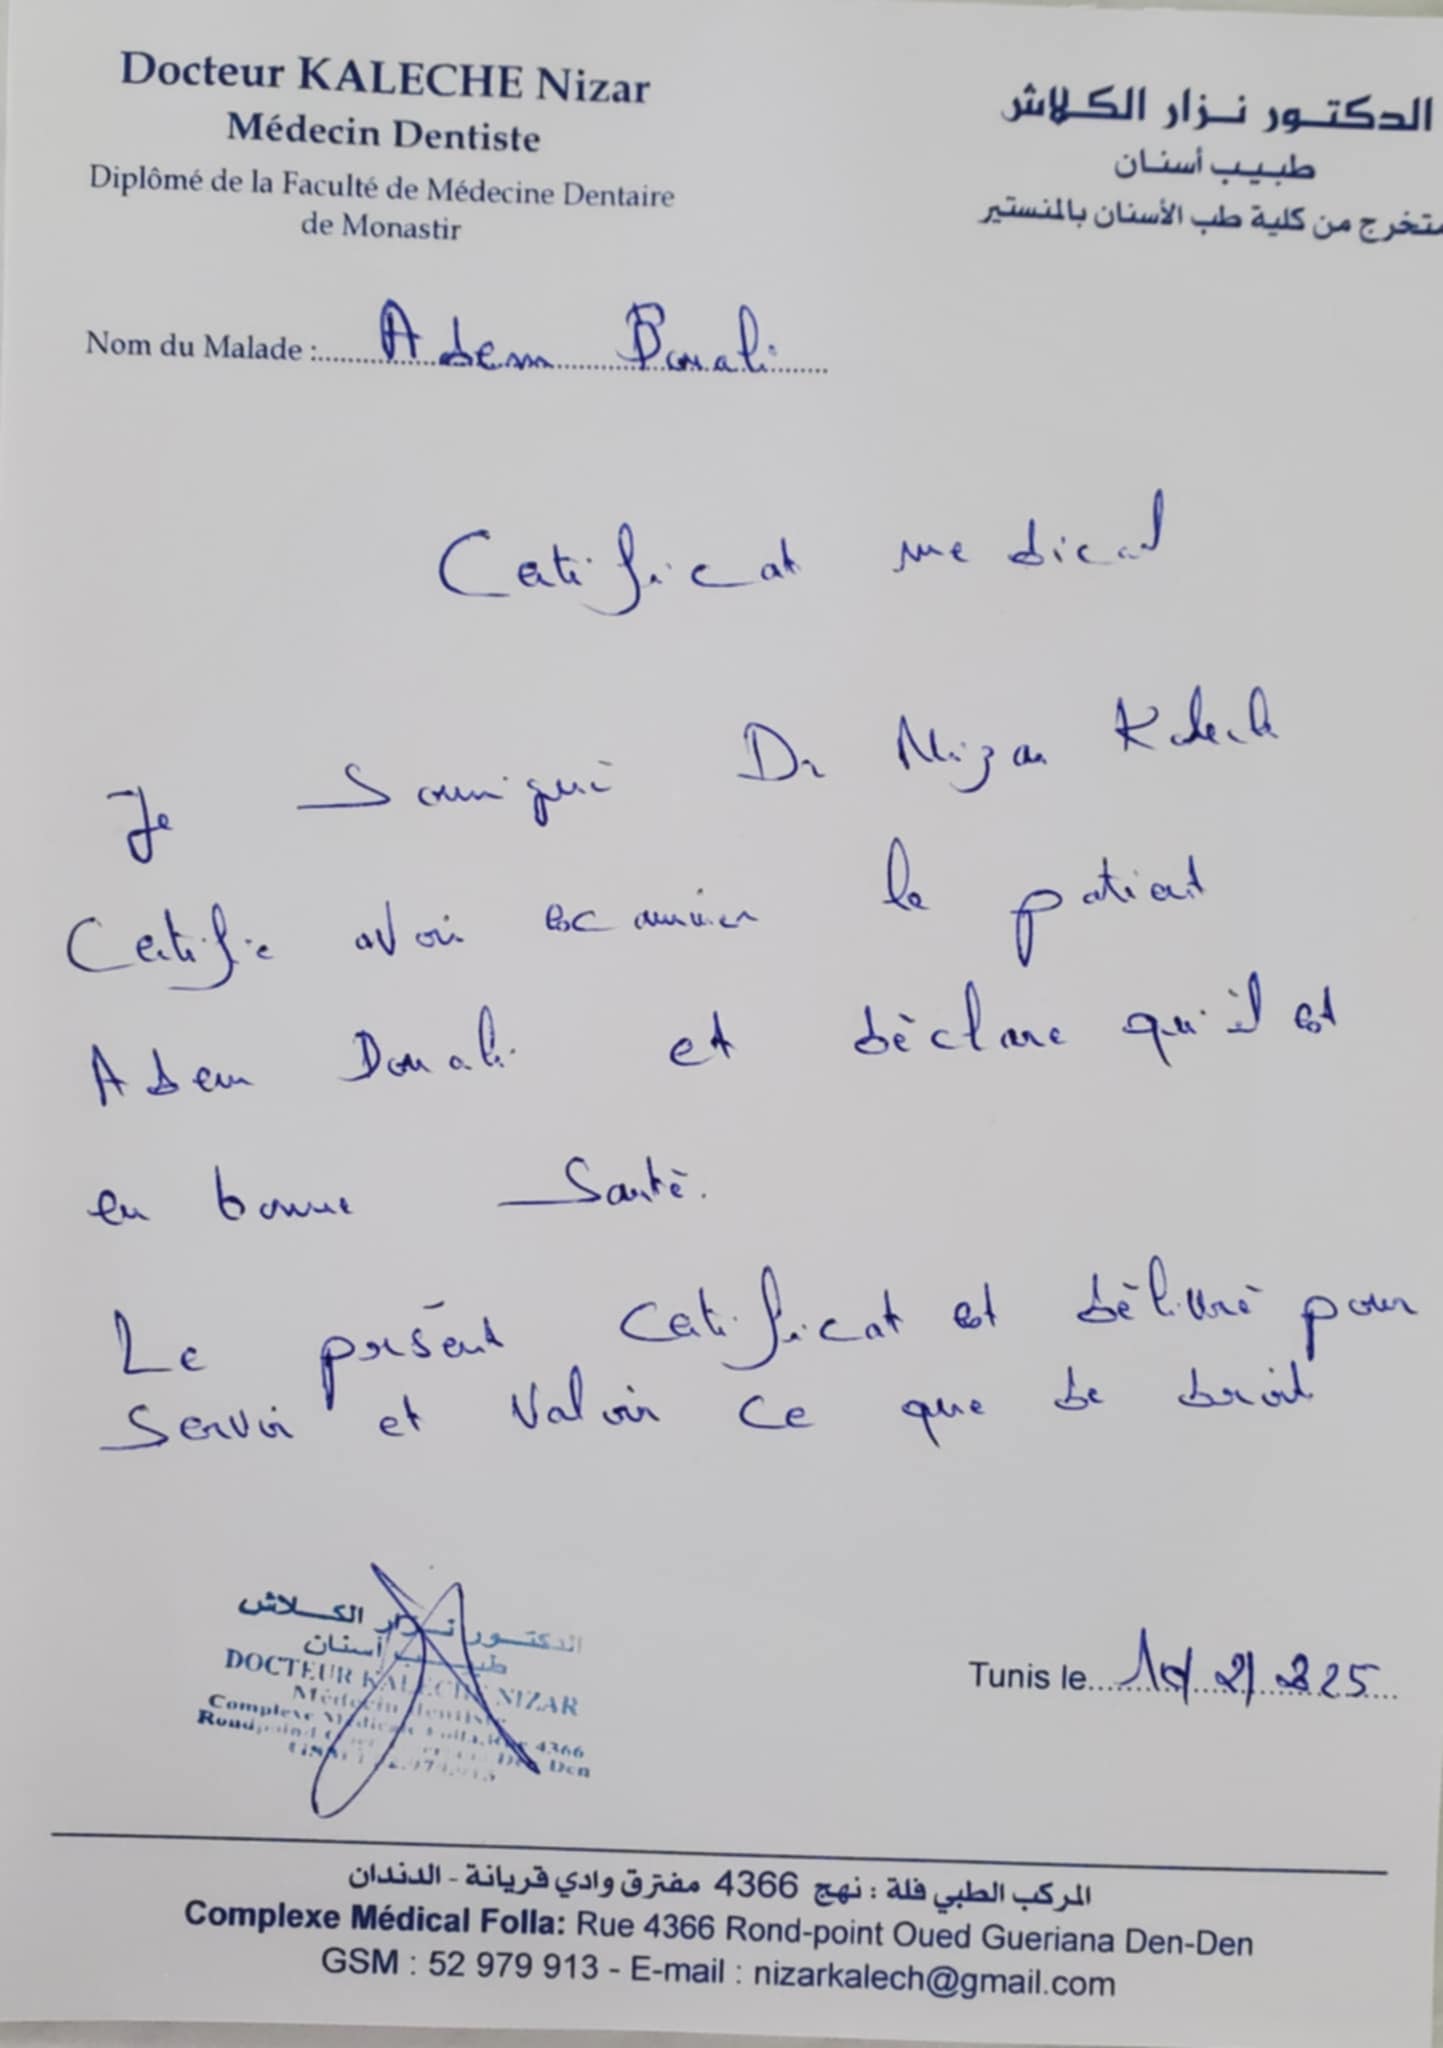 Docteur KALECHE Nizar
Médecin Dentiste
Diplômé de la Faculté de Médecine Dentaire
de Monastir
الدكتور نزار الكلاش
طبيب أسنان
متخرج من كلية طب الأسنان بالمنستير
Nom du Malade : Adem
Certificat medical
Je Dr Nizar Kalech
Certifie avoir examiner le patient
Adem et déclare qu'il est
en bonne Santé.
Le présent Certificat est délivré pour
Servir et Valoir Ce que de droit
الدكتور نزار الكلاش
طبيب أسنان
DOCTEUR KALECHE NIZAR
Médecin dentiste
Complexe Médical Folla, Rue 4366
Den Den
Tunis le
المركب الطبي فلة : نهج 4366 مفترق وادي قريانة - الدندان
Complexe Médical Folla: Rue 4366 Rond-point Oued Gueriana Den-Den
GSM : 52 979 913 - E-mail : nizarkalech@gmail.com